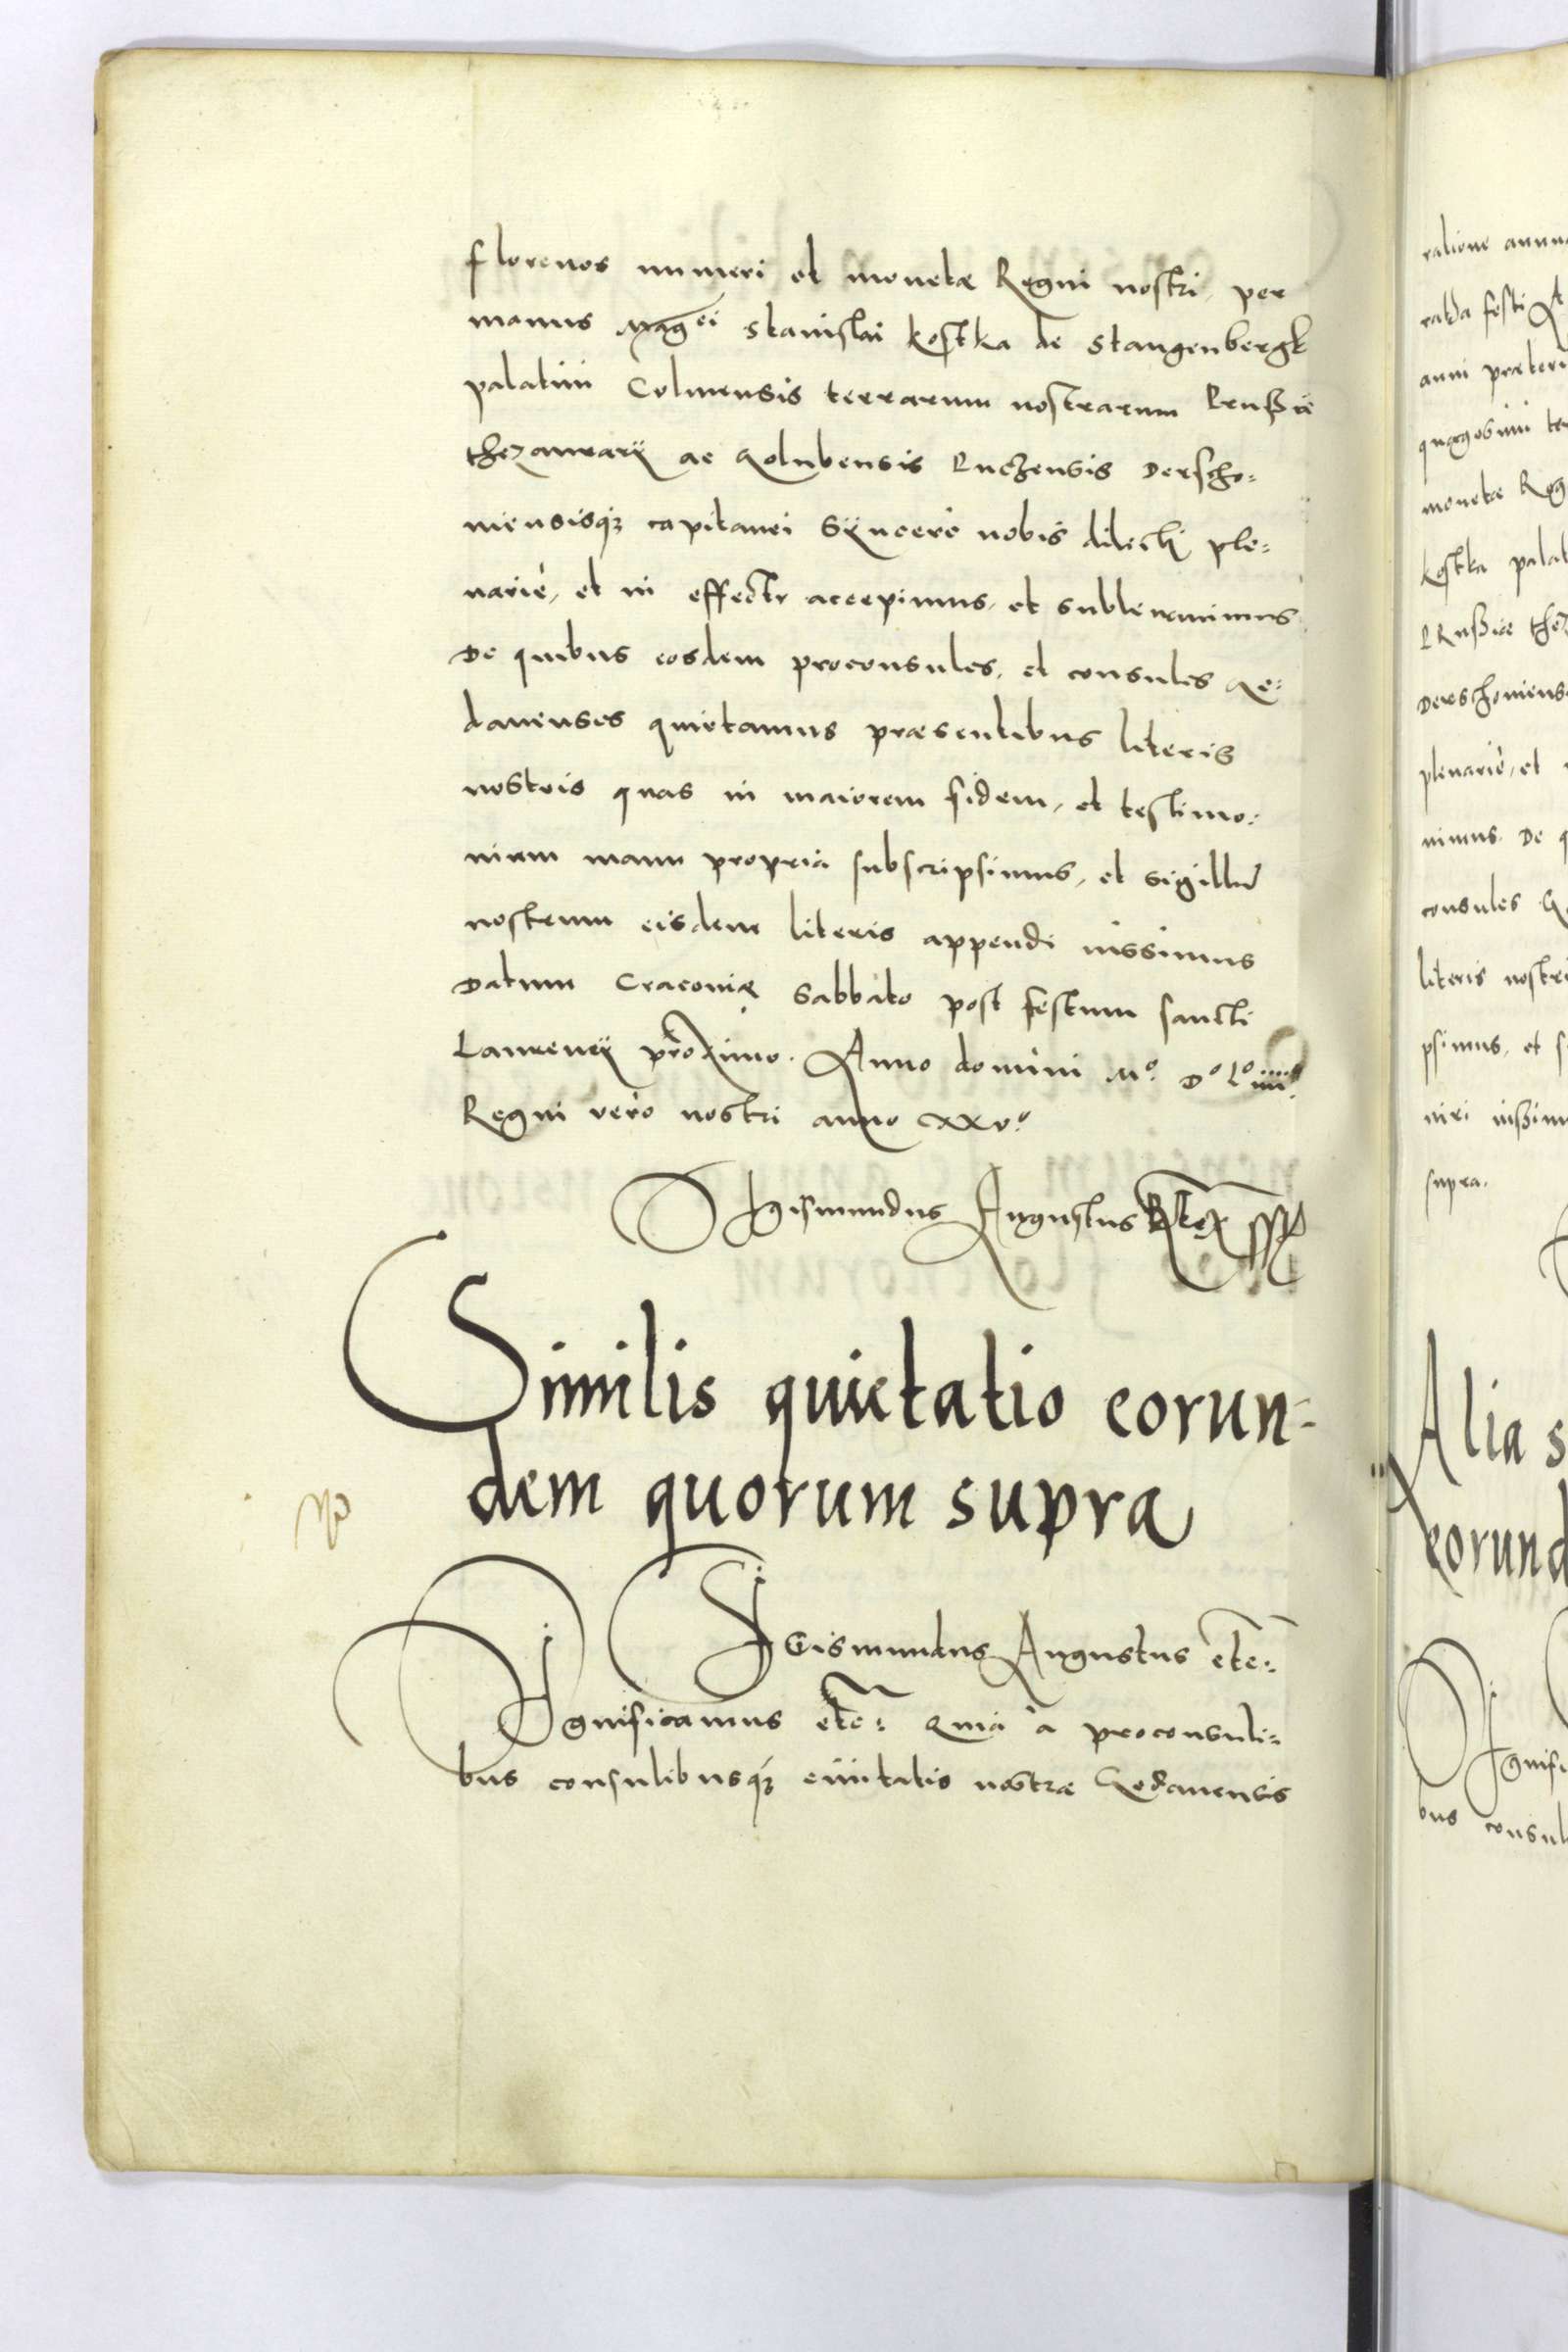 florenos numeri et monetæ Regni nostri, per
manus Mag^ci Stanislai Kostka de Stangenbergk
palatini Colmensis terrarum nostrarum Prussiæ
thezaurarij ac Golubensis Luczensis Derscho=
niensisq; capitanei Syncerè nobis dilecti ple=
nariè, et in effectu accepimus, et sublevavimus
De quibus eosdem proconsules, et consules Ge=
danenses quietamus præsentibus literis
nostris quas in maiorem fidem, et testimo=
nium manu propria subscripsimus, et sigillũ
nostrum eisdem literis appendi iussimus
Datum Cracoviæ Sabbato post festum sancti
Laurencij proximo. Anno domini Mº Dº Lº iiiiº
Regni vero nostri anno xxvº
Sigismundus Augustus Rex
Similis quietatio eorun=
dem quorum supra
Sigismundus Augustus etc:
Significamus etc: Quia à proconsuli=
bus consulibusq; civitatis nostræ Gedanensis
ratione annu
ralda festi
anni præteri
quagesimi te
monetæ Reg
Kostka palat
Prussiæ thez
Derschoniens
plenariè, et
nimus. De q
consules G
literis nostri
psimus, et s
niri iussim
supra.
Alia s
eorund
Signifi
bus consul